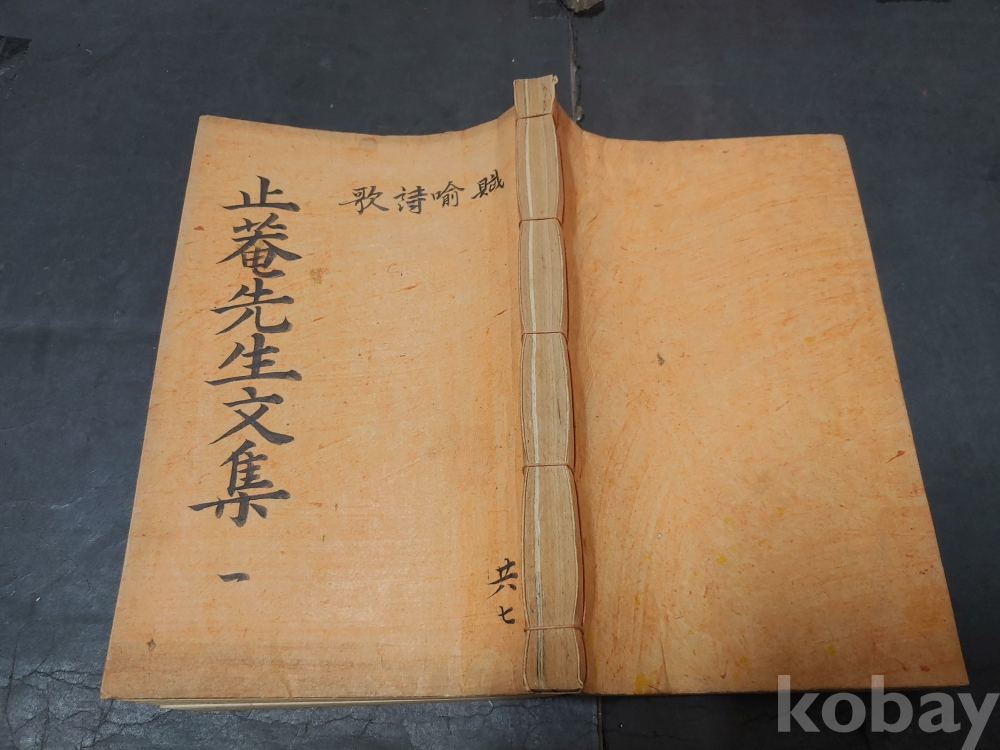 止菴先生文集 一
賦喻詩歌
共七
kobay